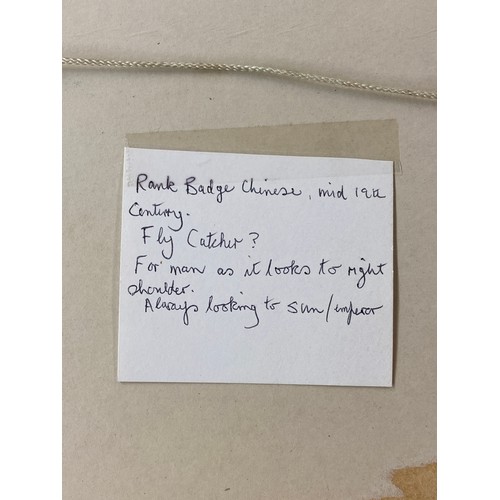 Rank Badge Chinese, mid 19th
Century.
Fly Catcher?
For man as it looks to right
shoulder.
Always looking to sun/emperor